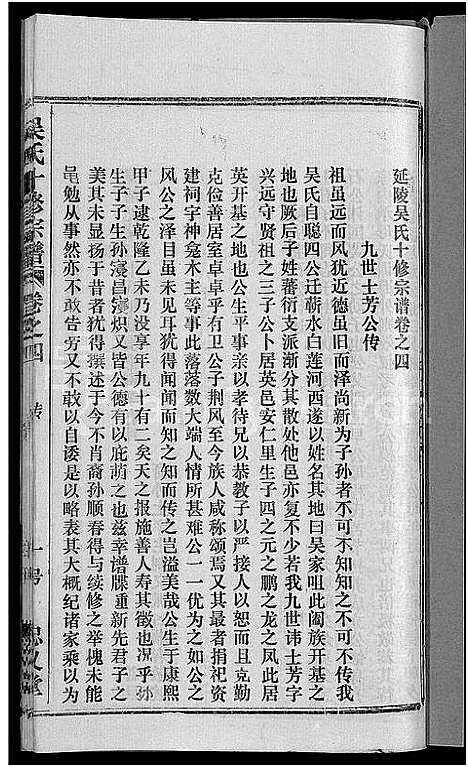 延陵吴氏十修宗谱卷之四
九世士芳公传
祖虽远而风犹近德虽旧而泽尚新为子孙者不可不知知之不可不传我
吴氏自聪四公迁蕲水白莲河西遂以姓名其地曰吴家咀此阖族开基之
地也厥后子姓蕃衍支派渐分其散处他邑亦复不少若我九世讳士芳字
兴远守贤祖之三子公卜居英邑安仁里生子四之元之鹏之龙之凤此居
英开基之地也公生平事亲以孝待兄以恭教子以严接人以恕而且克勤
克俭善居室卓卓乎有卫公子荆风至今族人咸称颂焉又其最者捐祀资
建祠宇神龛木主等事此落落数大端人情所甚难公一一优为之如公之
风公之泽目虽未见耳犹得闻闻而知之知而传之岂溢美哉公生于康熙
甲子逮乾隆乙未乃没享年九十有二矣天之报施善人寿其徵也况乎孙
生子子生孙濅昌濅炽又皆公德有以庇荫之也兹幸谱牒重新先君子之
美其未显扬于昔者犹得撰述于今不肖裔孙顺春得与续修之举愧未能
黾勉从事然亦不敢告劳又不敢以自诿是以略表其大概纪诸家乘以为
吴氏十修宗谱 卷之四 传 一号